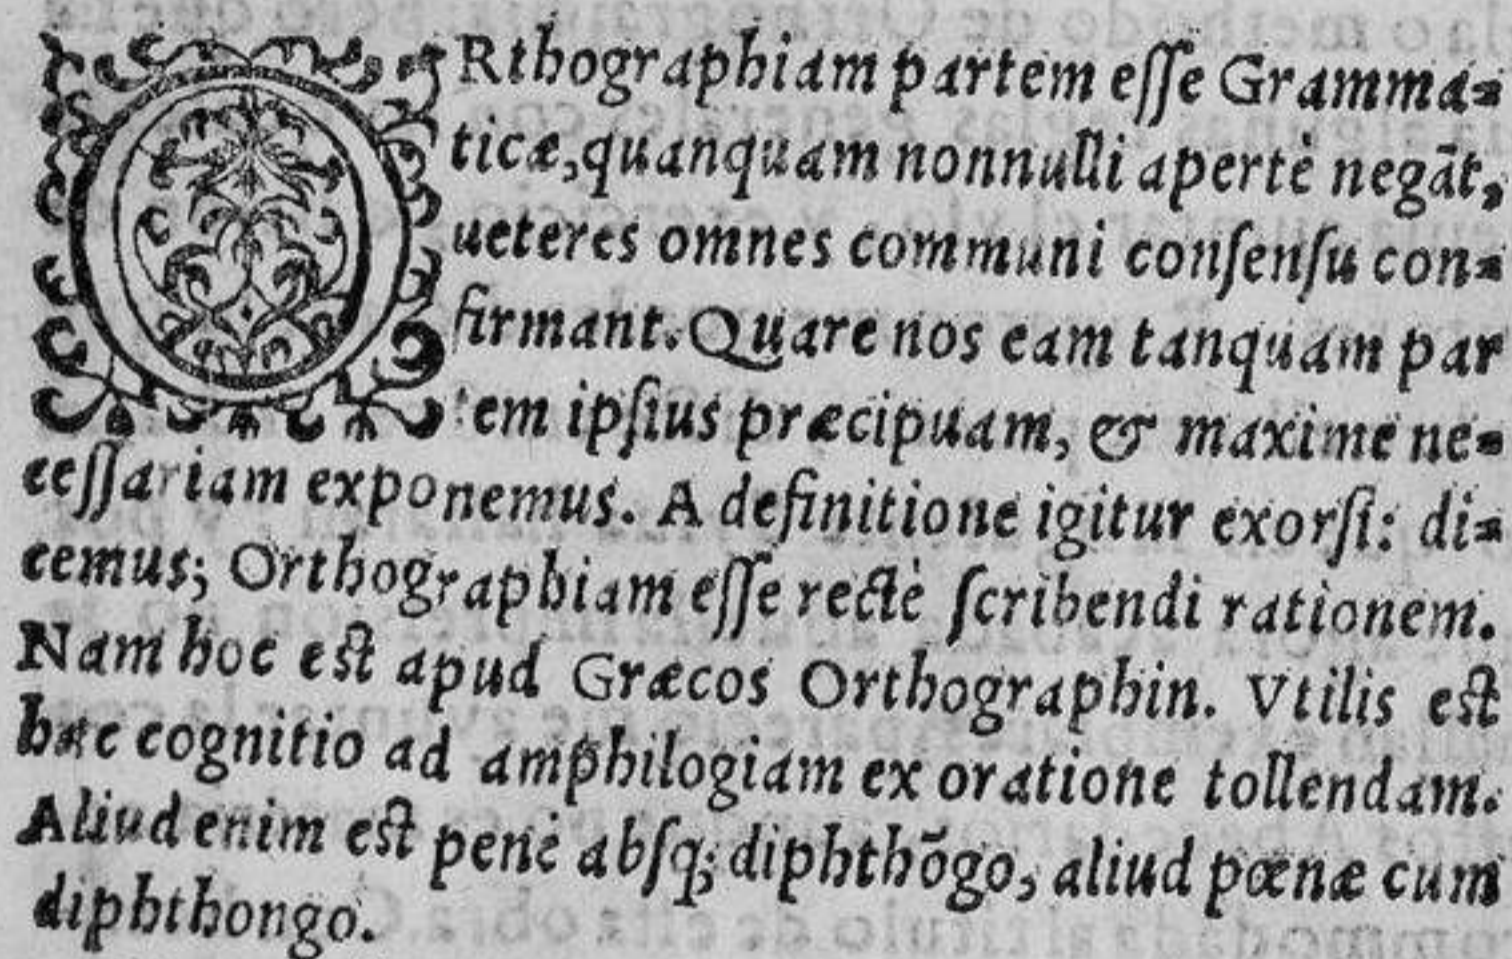 ORthographiam partem eſſe Gramma-
ticæ, quanquam nonnulli apertè negāt,
ueteres omnes communi conſenſu con-
firmant. Quare nos eam tanquam par
tem ipſius præcipuam, & maximè ne-
ceſſariam exponemus. A definitione igitur exorſi: di-
cemus; Orthographiam eſſe rectè ſcribendi rationem.
Nam hoc est apud Græcos Orthographin. Vtilis est
hæc cognitio ad amphilogiam ex oratione tollendam.
Aliud enim est penè abſq; diphthōgo, aliud pœnæ cum
diphthongo.